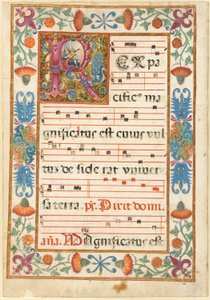 REx pa
cific⁹ ma
gnificatus est cuius vul
tuz de side rat univer
sa terra. ps. Dixit domi.
aña. Magnificatus est